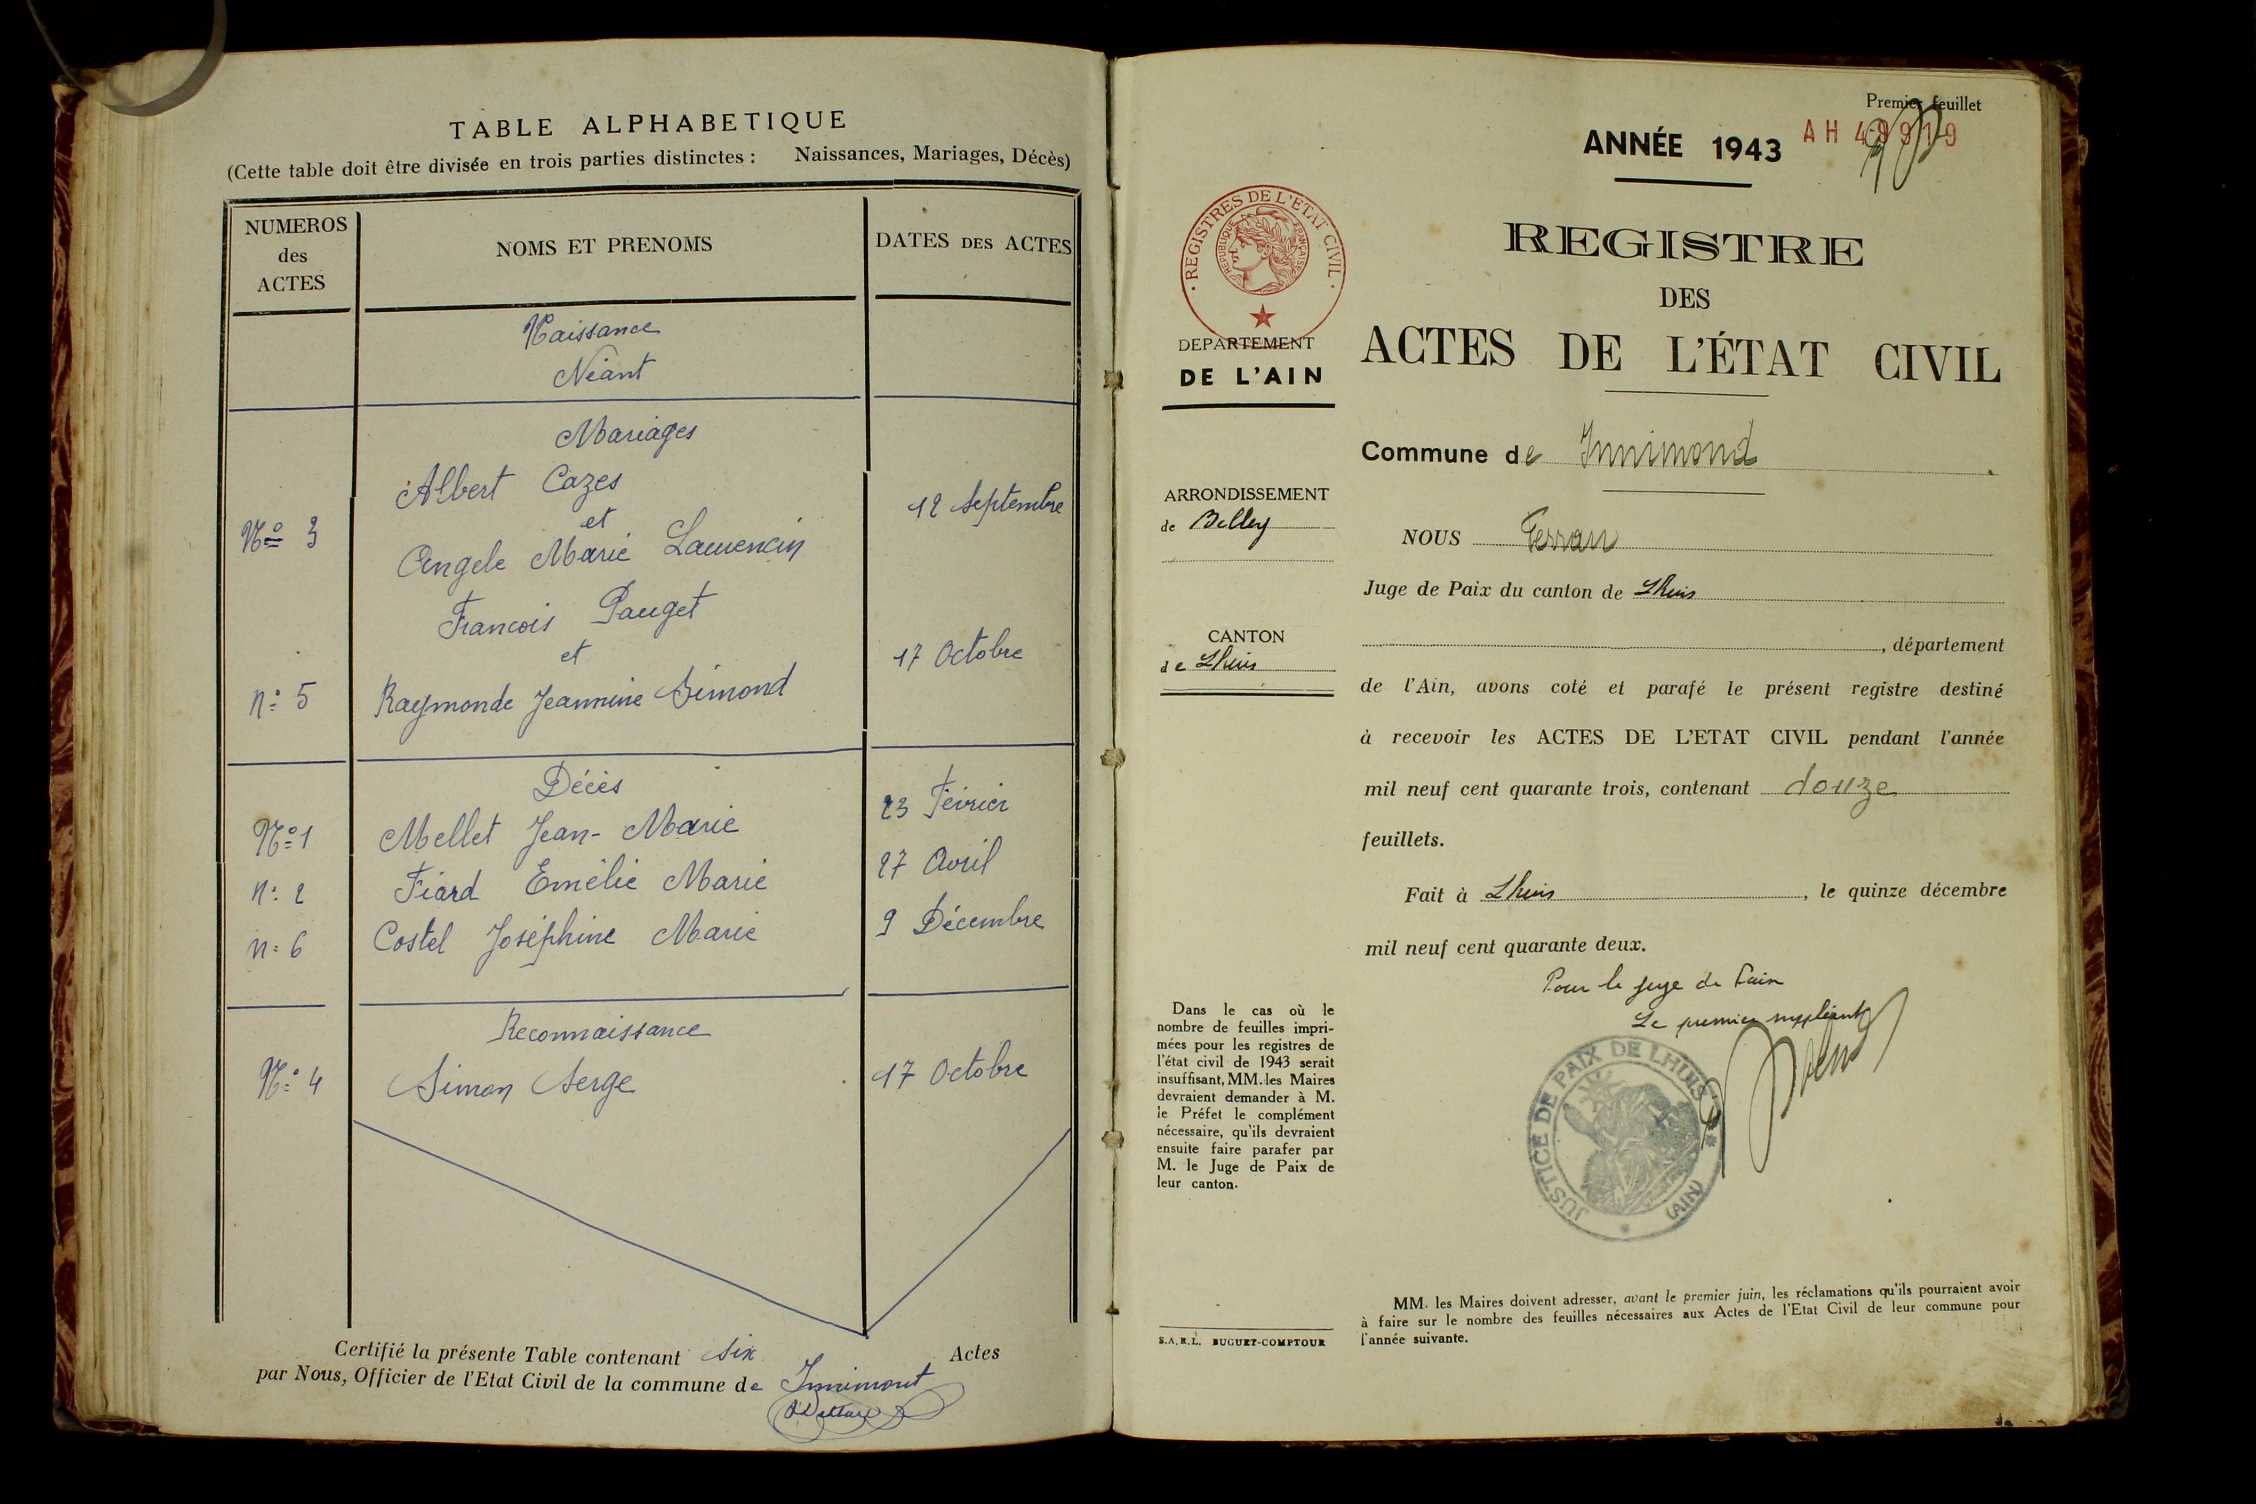 TABLE ALPHABETIQUE
(Cette table doit être divisée en trois parties distinctes : Naissances, Mariages, Décès)
NUMEROS
des
ACTES
NOMS ET PRENOMS
DATES DES ACTES
Naissance
Néant
Mariages
Albert Cazes
12 Septembre
et
Nº 3
Angele Marie Laurencin
François Pauget
et
17 Octobre
n: 5 Raymonde Jeannine Simond
Décès
Nº 1 Mellet Jean-Marie 23 Février
n: 2 Fiard Emélie Marie 27 Avril
n: 6 Costel Joséphine Marie 9 Décembre
Reconnaissance
Nº 4 Simon Serge 17 Octobre
Certifié la présente Table contenant six Actes
par Nous, Officier de l'Etat Civil de la commune de Innimont
Premier feuillet
ANNÉE 1943 AH 49919
REGISTRES DE L'ETAT CIVIL
REPUBLIQUE FRANÇAISE
DEPARTEMENT
DE L'AIN
REGISTRE
DES
ACTES DE L'ÉTAT CIVIL
Commune de Innimond
ARRONDISSEMENT
de Belley
CANTON
de Lhuis
NOUS Ferran
Juge de Paix du canton de Lhuis
, département
de l'Ain, avons coté et parafé le présent registre destiné
à recevoir les ACTES DE L'ETAT CIVIL pendant l'année
mil neuf cent quarante trois, contenant douze
feuillets.
Fait à Lhuis, le quinze décembre
mil neuf cent quarante deux.
Pour le juge de Paix
Le premier suppléant
JUSTICE DE PAIX DE LHUIS
(AIN)
Dans le cas où le
nombre de feuilles impri-
mées pour les registres de
l'état civil de 1943 serait
insuffisant, MM. les Maires
devraient demander à M.
le Préfet le complément
nécessaire, qu'ils devraient
ensuite faire parafer par
M. le Juge de Paix de
leur canton.
S.A.R.L. BUGUET-COMPTOUR
MM. les Maires doivent adresser, avant le premier juin, les réclamations qu'ils pourraient avoir
à faire sur le nombre des feuilles nécessaires aux Actes de l'Etat Civil de leur commune pour
l'année suivante.